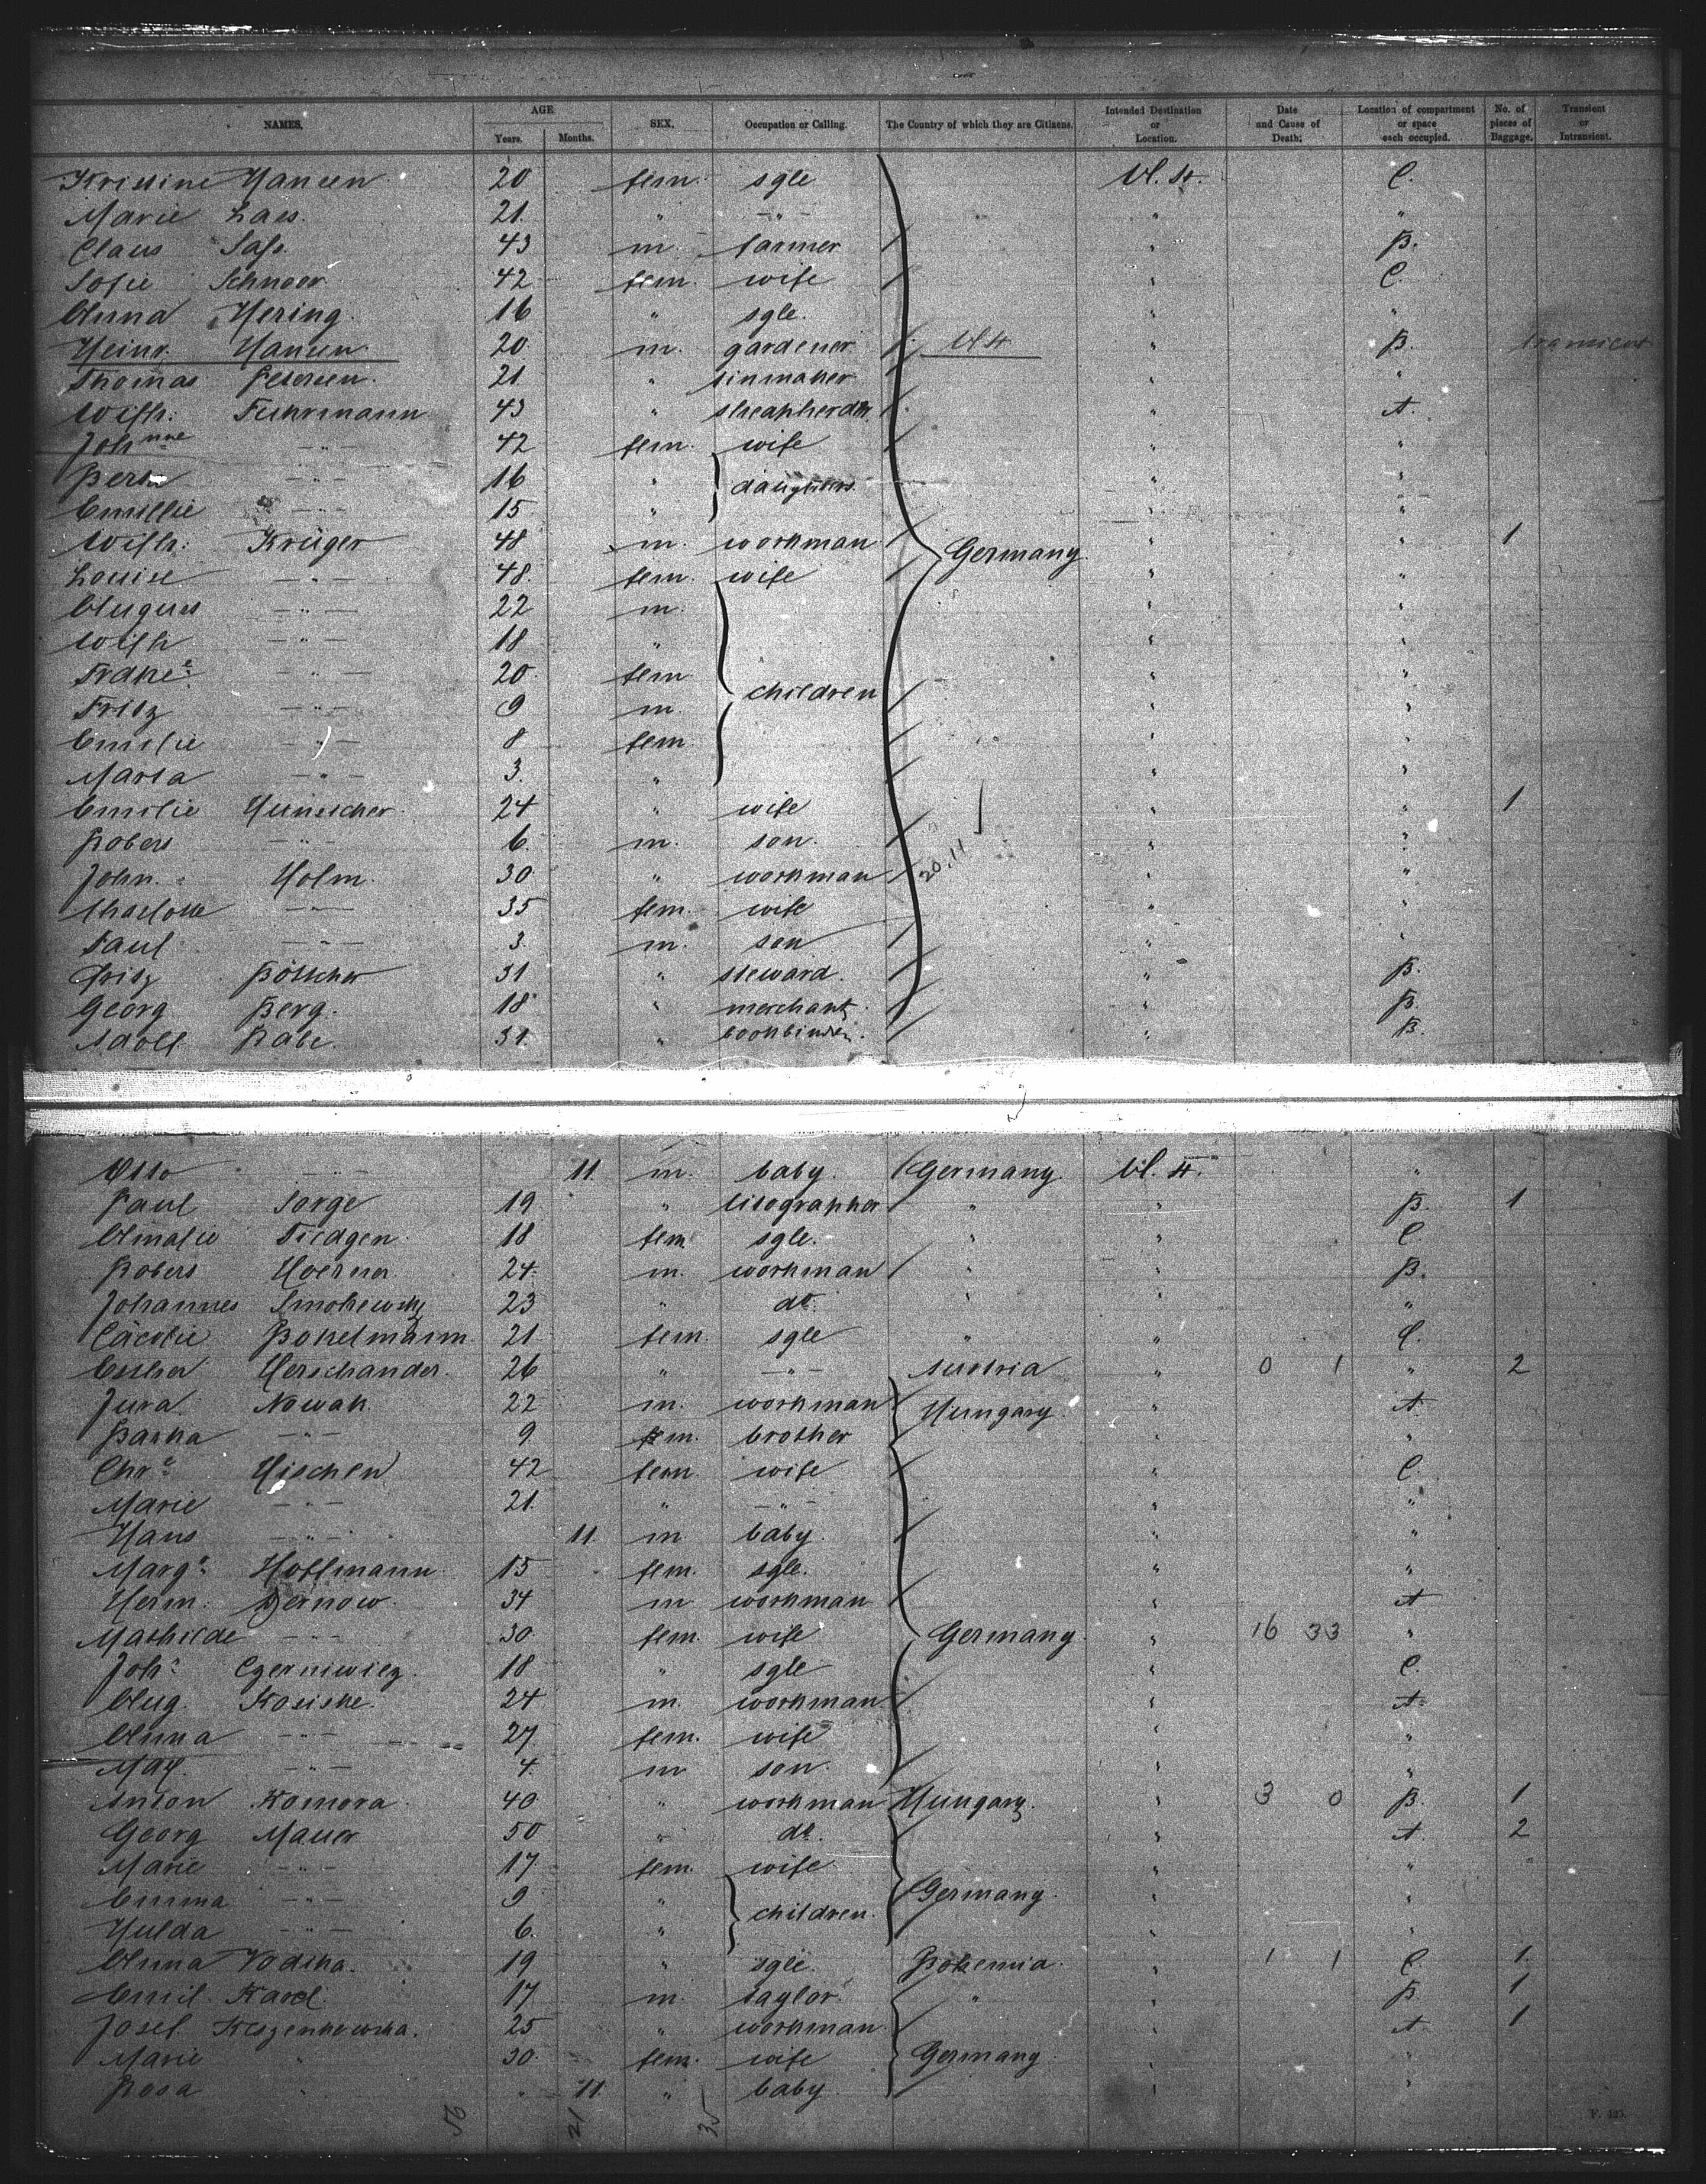 NAMES. AGE SEX. Occupation or Calling. The Country of which they are Citizens. Intended Destination or Location. Date and Cause of Death. Location of compartment or space each occupied. No. of pieces of Baggage. Transient or Intransient.
Years. Months.
Kristine Hansen 20 fem. sgle U. St. C.
Marie Laes. 21. " —"— " "
Claus Sass. 43 m. farmer / " B.
Sofie Schnoor 42 fem. wife / " C.
Anna Hering. 16 " sgle. " "
Heinr. Hansen 20 m. gardener / U.S. " B. transient
Thomas Petersen. 21. " tinmaker / " "
Wilh. Fuhrmann 43 " sheapherd / " A.
Johnne —"— 42 fem. wife / " "
Berta —"— 16 " daughters " "
Emillie —"— 15 " " "
Wilh. Krüger 48 m. workman / Germany " " 1
Louise —"— 48. fem. wife / " "
August —"— 22 m. " "
Wilh —"— 18 " " "
Frdke —"— 20. fem children " "
Fritz —"— 9 m. / " "
Emilie —"— 8 fem / " "
Marta —"— 3. " / " "
Emilie 24 " wife / " " 1
Robert —"— 6. m. son. / " "
John. Holm. 30. " workman / 20.11 " "
Charlotte —"— 35 fem. wife " "
Paul —"— 3. m. son / " "
Fritz Böttcher 31 " steward. / " B.
Georg Berg. 18 " merchant / " B.
Adolf Rabe. 31. " bookbinder. / " B.
Otto —"— 11. m. baby. / Germany. U. St. "
Paul Sorge 19 " litographer / " " B. 1
Amalie Tiedgen. 18 fem sgle. " " C.
Robert Hoerner 24. m. workman / " " B.
Johannes 23 " do. " " "
Cäcilie Bokelmann 21 fem. sgle " " C.
Esther Herschander. 26 " —"— Austria " 0 1 " 2
Jura Nowak 22 m. workman / Hungary. " A.
Barka —"— 9 m. brother " "
Chre Hischen 42 fem wife / " C.
Marie —"— 21. " —"— " "
Hans —"— 11. m baby. / " "
Marge Hoffmann 15 fem. sgle. " "
Herm. Dernow. 34 m workman / " A
Mathilde —"— 30. fem. wife Germany. " 16 33 "
Joh. Czerniwicz. 18 " sgle " C.
Aug. Kosiske. 24 m. workman / " A.
Anna —"— 27. fem. wife " "
Max. —"— 4. m son. / " "
Anton Komora. 40. " workman Hungary. " 3 0 B. 1
Georg Mauer 50 " do. / " A. 2
Marie —"— 17. fem. wife " "
Emma —"— 9 " children. / Germany. " "
Hulda —"— 6. " / " "
Anna Vodska. 19 " sgle. Bohemia. " 1 1 C. 1.
Emil Karel. 17 m. taylor. " " B. 1
Josef 25 " workman / " A. 1
Marie " 30. fem. wife Germany. " "
Rosa " " 11. " baby. / " "
56 21 35
F. 125.